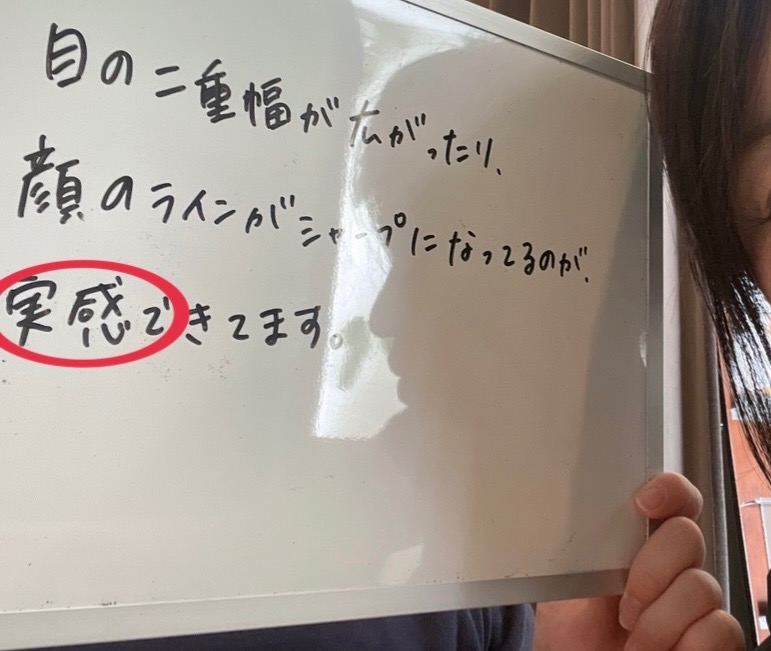 目の二重幅が広がったり、
顔のラインがシャープになってるのが、
実感できてます。